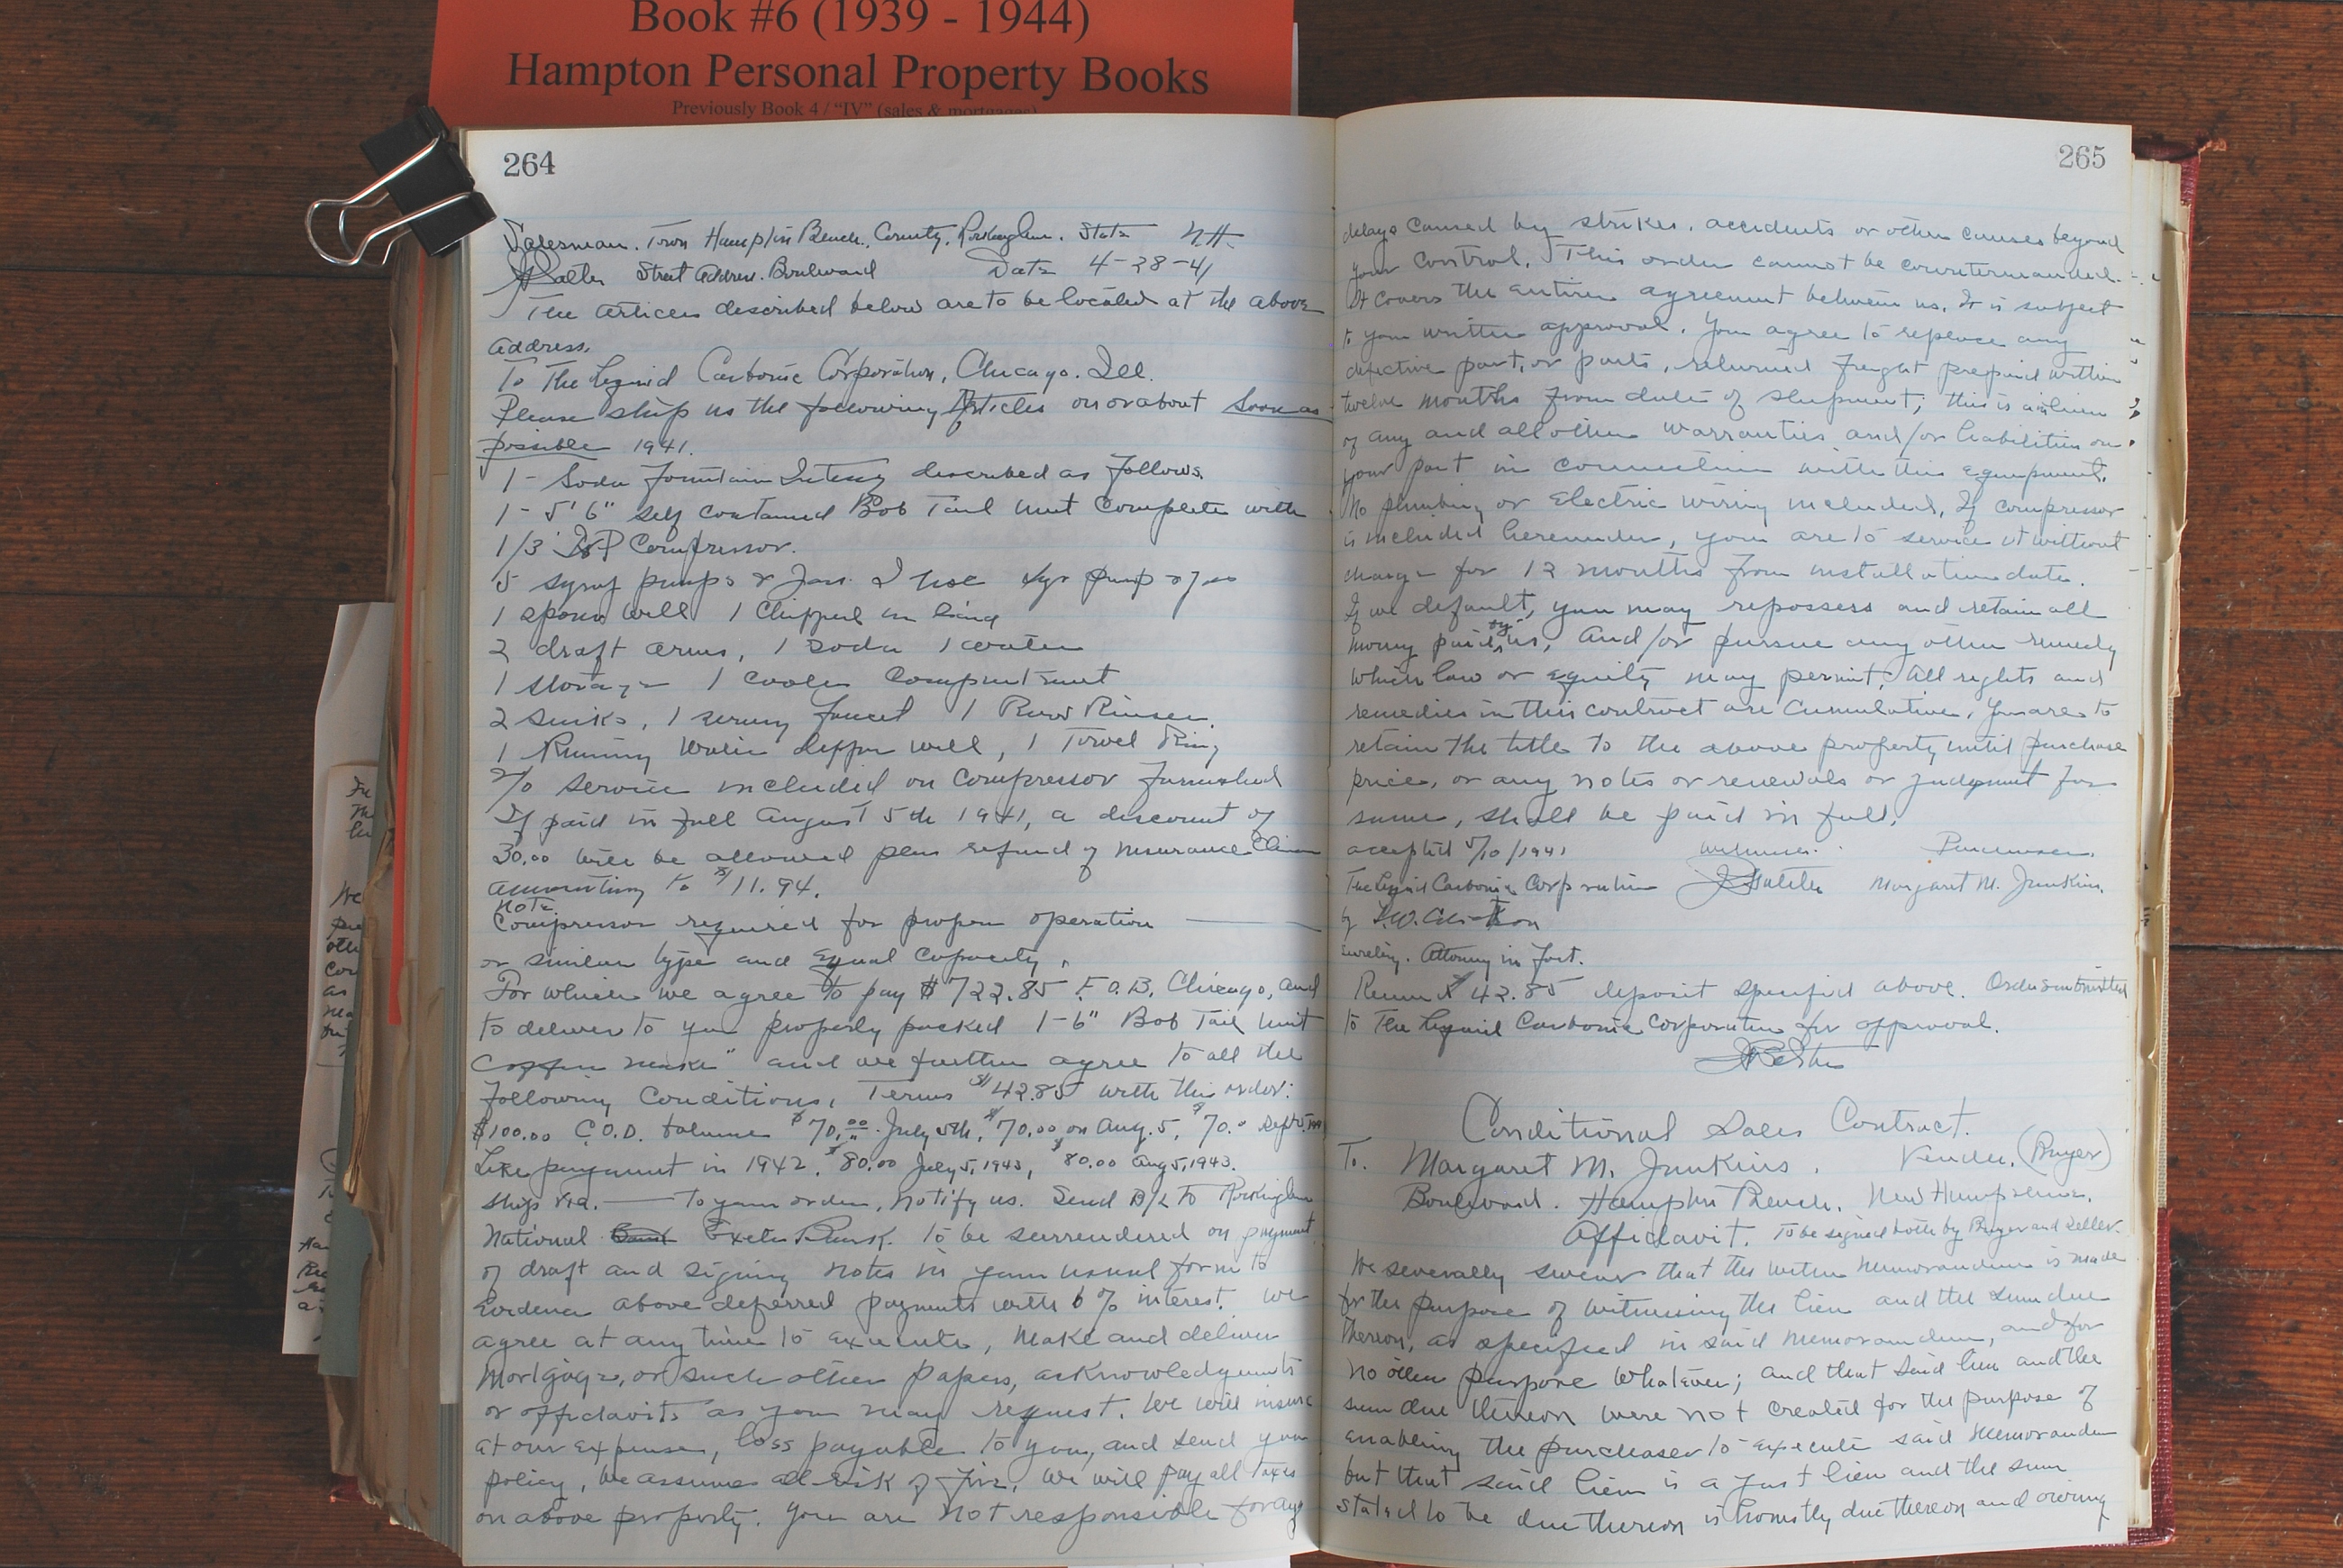 Book #6 (1939 - 1944)
Hampton Personal Property Books
Previously Book 4 / "IV" (sales & mortgages)
264
Salesman. Town Hampton Beach, County, Rockingham. State N.H.
Street Address. Boulevard Date 4-28-41
The articles described below are to be located at the above
address.
To The Liquid Carbonic Corporation, Chicago. Ill.
Please ship us the following Articles on or about Soon as
possible 1941.
1 - Soda Fountain described as follows.
1 - 5'6" self contained Bob Tail Unit Complete with
1/3 HP Compressor.
5 syrup pumps & Jars
1 spoon well 1 Chipped in
2 draft arms, 1 soda 1 water
1 storage 1 cooler Compartment
2 sinks, 1 faucet 1
1 Running Water dipper well, 1 Towel Ring
% service included on Compressor furnished
If paid in full August 5th 1941, a discount of
30.00 will be allowed plus refund of insurance
amounting to $11.94.
Note
Compressor required for proper operation
or similar type and equal capacity.
For which we agree to pay $722.85 F.O.B. Chicago, and
to deliver to you properly packed 1-6" Bob Tail Unit
make" and we further agree to all the
following Conditions, Terms $42.85 with this order:
$100.00 C.O.D. balance $70.00 July 5th, $70.00 on Aug. 5, $70.00 Sept 5
Like payment in 1942. $80.00 July 5, 1943, $80.00 Aug 5, 1943.
Ship via. to your order, notify us. Send B/L to Rockingham
National Bank Exeter Bank. to be surrendered on payment
of draft and signing notes in your usual form to
evidence above deferred payments with 6% interest. We
agree at any time to execute, make and deliver
Mortgage, or such other papers, acknowledgments
or affidavits as you may request. We will insure
at our expense, loss payable to you, and send you
policy, We assume all risk of fire, We will pay all taxes
on above property. You are not responsible for any
265
delays caused by strikes, accidents or other causes beyond
your control. This order cannot be countermanded.
It covers the entire agreement between us. It is subject
to your written approval. You agree to replace any
defective part, or parts, returned freight prepaid within
twelve months from date of shipment; this is in lieu
of any and all other warranties and/or liabilities on
your part in connection with this equipment.
No plumbing or Electric wiring included. If compressor
is included hereunder, you are to service it without
charge for 12 months from installation date.
If we default, you may repossess and retain all
money paid by us, and/or pursue any other remedy
which law or equity may permit. All rights and
remedies in this contract are cumulative. You are to
retain the title to the above property until purchase
price, or any notes or renewals or judgment for
same, shall be paid in full.
accepted 5/10/1941 Witness. Purchaser.
The Liquid Carbonic Corporation Margaret M. Junkins.
by
Attorney in Fact.
$42.85 deposit specified above. Order submitted
to The Liquid Carbonic Corporation for approval.
Conditional Sales Contract.
To. Margaret M. Junkins. Vendee. (Buyer)
Boulevard. Hampton Beach. New Hampshire.
Affidavit. To be signed both by Buyer and Seller.
We severally swear that the within Memorandum is made
for the purpose of witnessing the lien and the sum due
thereon, as specified in said memorandum, and for
no other purpose whatever; and that said lien and the
sum due thereon were not created for the purpose of
enabling the purchaser to execute said memorandum
but that said lien is a just lien and the sum
stated to be due thereon is honestly due thereon and owing